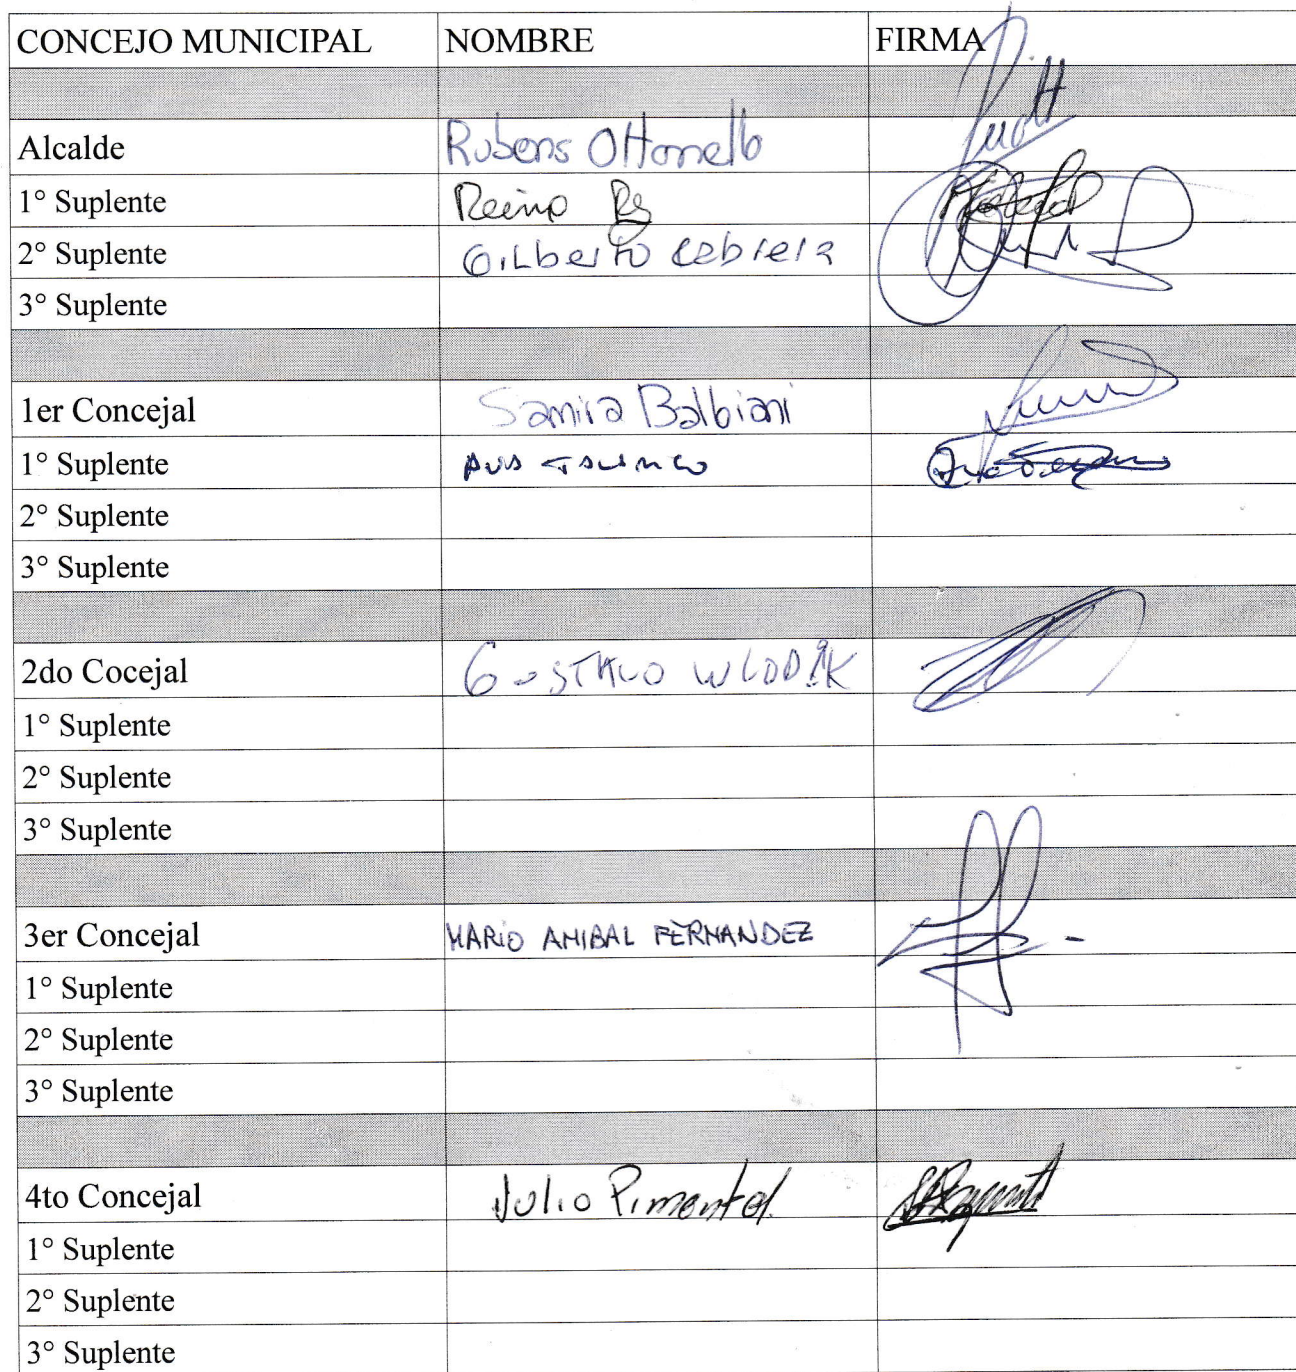 CONCEJO MUNICIPAL NOMBRE FIRMA
Alcalde Rubens Ottonello
1° Suplente
2° Suplente Gilberto Cabrera
3° Suplente
1er Concejal Samira Balbiani
1° Suplente
2° Suplente
3° Suplente
2do Cocejal GUSTAVO WLODEK
1° Suplente
2° Suplente
3° Suplente
3er Concejal MARIO ANIBAL FERNANDEZ
1° Suplente
2° Suplente
3° Suplente
4to Concejal Julio Pimentel
1° Suplente
2° Suplente
3° Suplente